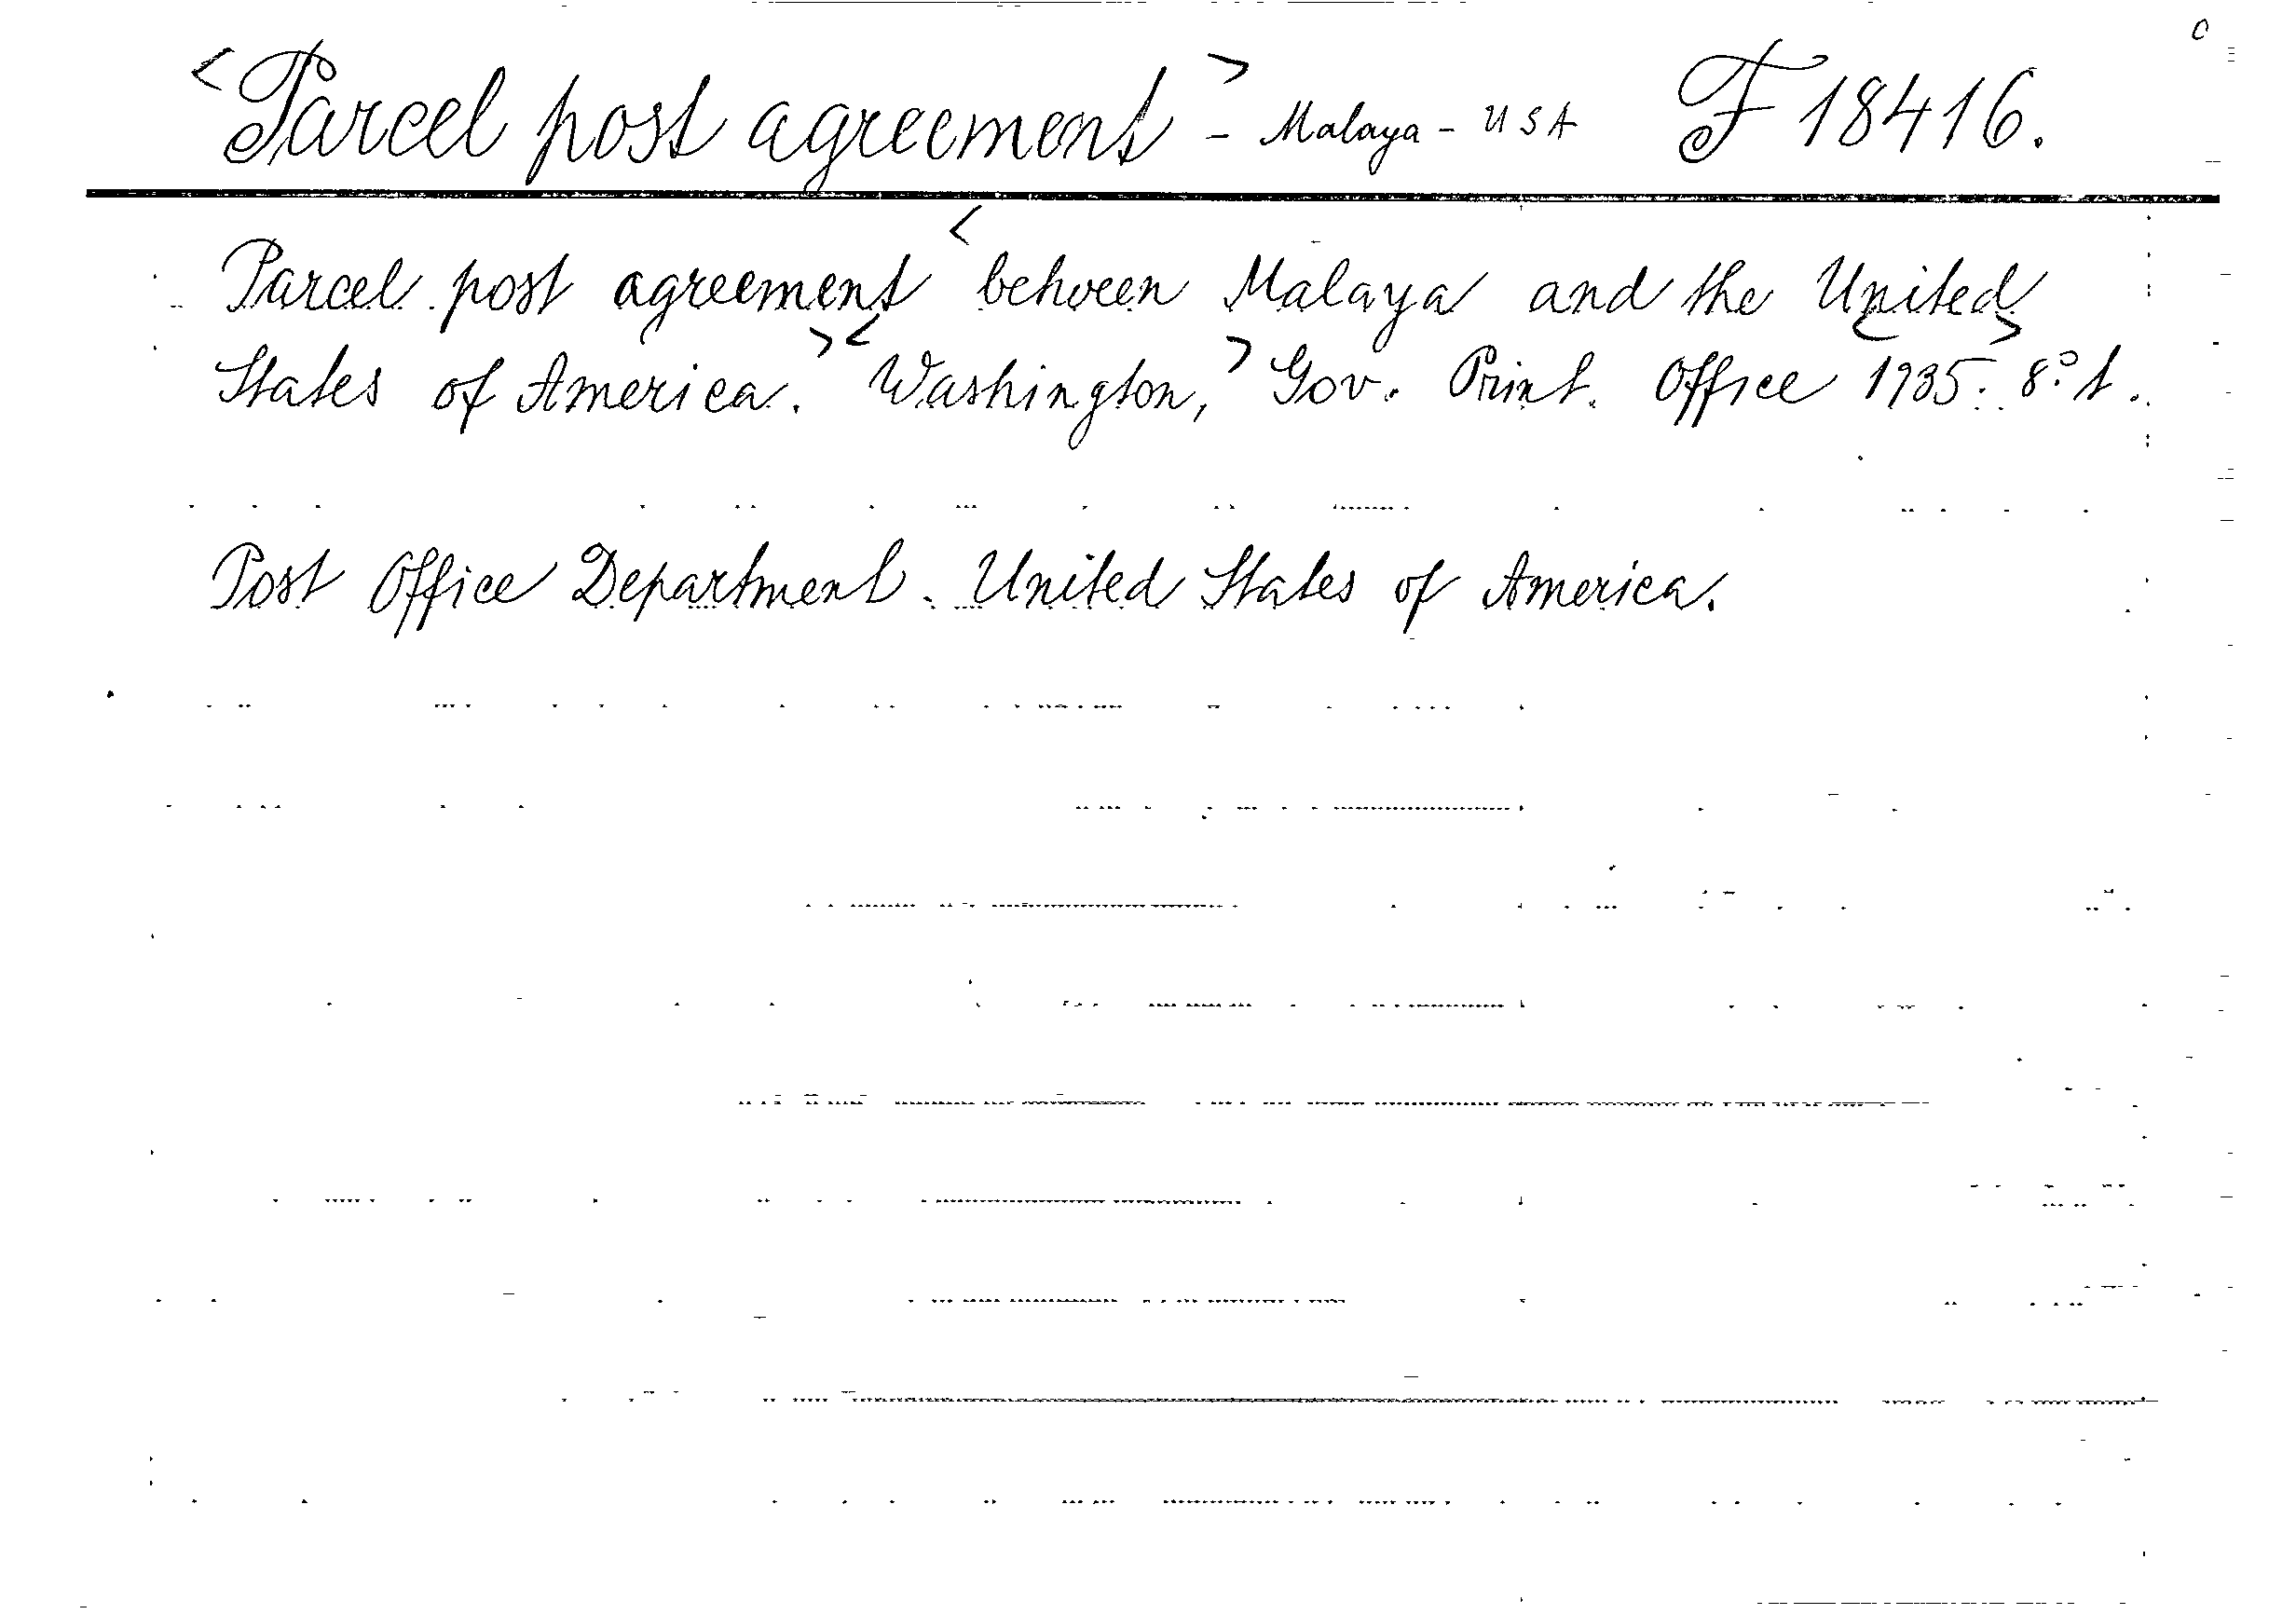 <Parcel post agreement> - Malaya - USA F 18416.
Parcel post agreement < between Malaya and the United
States of America. > < Washington, > Gov. Print. Office <1935.> 8° t.
Post Office Department. United States of America.